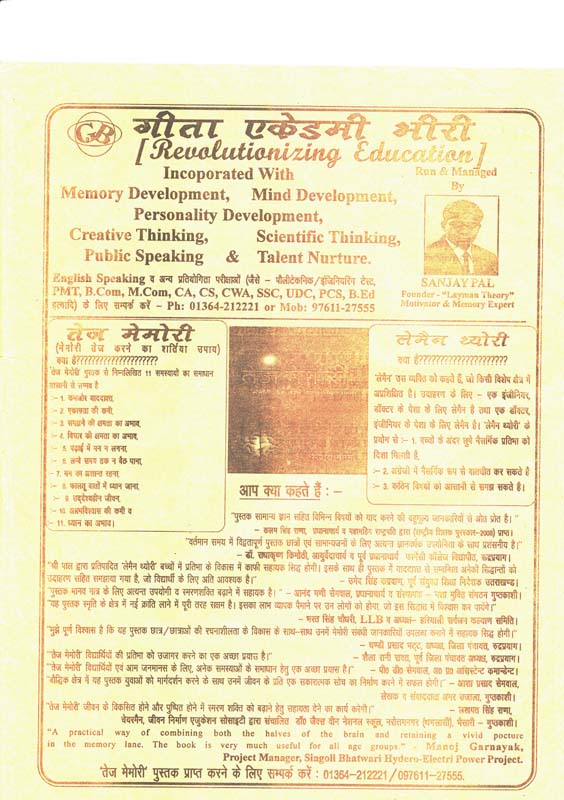 GB गीता एकेडमी भीरी
[Revolutionizing Education]
Incoporated With
Run & Managed
By
Memory Development, Mind Development,
Personality Development,
Creative Thinking, Scientific Thinking,
Public Speaking & Talent Nurture.
SANJAY PAL
Founder - "Layman Theory"
Motivator & Memory Expert
English Speaking व अन्य प्रतियोगिता परीक्षाओं (जैसे - पौलीटेकनिक/इंजिनियरिंग टेस्ट,
PMT, B.Com, M.Com, CA, CS, CWA, SSC, UDC, PCS, B.Ed
इत्यादि) के लिए सम्पर्क करें - Ph: 01364-212221 or Mob: 97611-27555
तेज मेमोरी
(मेमोरी तेज करने का शर्तिया उपाय)
क्या है??????????????????????
'तेज मेमोरी' पुस्तक से निम्नलिखित 11 समस्याओं का समाधान
आसानी से सम्भव है
:- 1. कमजोर याददाश्त,
:- 2. एकाग्रता की कमी,
:- 3. समझने की क्षमता का अभाव,
:- 4. विचार की क्षमता का अभाव,
:- 5. पढ़ाई में मन न लगना,
:- 6. लम्बे समय तक न बैठ पाना,
:- 7. मन का अशान्त रहना,
:- 8. फालतू बातों में ध्यान जाना,
:- 9. उद्देश्यहीन जीवन,
:- 10. आत्मविश्वास की कमी व
:- 11. ध्यान का अभाव।
लेमैन थ्योरी
क्या है??????????????????????
'लेमैन' उस व्यक्ति को कहते हैं, जो किसी विशेष क्षेत्र में
अप्रशिक्षित है। उदाहरण के लिए - एक इंजीनियर,
डॉक्टर के पेशा के लिए लेमैन है तथा एक डॉक्टर,
इंजीनियर के पेशा के लिए लेमैन है। 'लेमैन थ्योरी' के
प्रयोग से :- 1. बच्चों के अंदर छुपे नैसर्गिक प्रतिभा को
दिशा मिलती है,
:- 2. अंग्रेजी में नैसर्गिक रूप से बातचीत कर सकते हैं
:- 3. कठिन विषयों को आसानी से समझ सकते हैं।
आप क्या कहते हैं : –
"पुस्तक सामान्य ज्ञान सहित विभिन्न विषयों को याद करने की बहुमूल्य जानकारियों से ओत प्रोत है।"
- कलम सिंह राणा, प्रधानाचार्य व (राष्ट्रीय शिक्षक पुरस्कार-2008) प्राप्त।
"वर्तमान समय में विद्वतापूर्ण पुस्तक छात्रों एवं सामान्यजनों के लिए अत्यन्त ज्ञानवर्धक उपयोगिता के साथ प्रशंसनीय है।"
- डॉ. राधाकृष्ण किमोठी, आयुर्वेदाचार्य व पूर्व प्रधानाचार्य विद्यापीठ, रूद्रप्रयाग।
"श्री पाल द्वारा प्रतिपादित 'लेमैन थ्योरी' बच्चों में प्रतिभा के विकास में काफी सहायक सिद्ध होगी। इसके साथ ही पुस्तक में याददाश्त से सम्बन्धित अनेकों सिद्धान्तों को
उदाहरण सहित समझाया गया है, जो विद्यार्थी के लिए अति आवश्यक है।" - उमेद सिंह पूर्व संयुक्त शिक्षा निदेशक उत्तराखण्ड।
"पुस्तक मानव मात्र के लिए अत्यन्त उपयोगी व स्मरणशक्ति बढ़ाने में सहायक है।" - आनन्द मणी सेमवाल, प्रधानाचार्य व संस्थापक - गुप्तकाशी।
"यह पुस्तक स्मृति के क्षेत्र में नई क्रांति लाने में पूरी तरह सक्षम है। इसका लाभ व्यापक पैमाने पर उन लोगों को होगा, जो इस सिद्धांत में विश्वास कर पायेंगे।"
- भरत सिंह चौधरी, LLB व अध्यक्ष- हरियाली सार्वजन कल्याण समिति।
"मुझे पूर्ण विश्वास है कि यह पुस्तक छात्र/छात्राओं की रचनाशीलता के विकास के साथ-साथ उनमें मेमोरी संबंधी जानकारियाँ उपलब्ध कराने में सहायक सिद्ध होगी।"
- चण्डी प्रसाद भट्ट, अध्यक्ष, जिला पंचायत, रूद्रप्रयाग।
"'तेज मेमोरी' विद्यार्थियों की प्रतिभा को उजागर करने का एक अच्छा प्रयास है।" - शैला रानी रावत, पूर्व जिला पंचायत अध्यक्ष, रूद्रप्रयाग।
"'तेज मेमोरी' विद्यार्थियों एवं आम जनमानस के लिए, अनेक समस्याओं के समाधान हेतु एक अच्छा प्रयास है।" - पी० डी० सेमवाल, अ० प्र० असिस्टेन्ट कमान्डेन्ट।
"बौद्धिक क्षेत्र में यह पुस्तक युवाओं को मार्गदर्शन करने के साथ उनमें जीवन के प्रति एक सकारात्मक सोच का निर्माण करने में सफल होगी।" - आशा प्रसाद सेमवाल,
लेखक व संवाददाता अमर उजाला, गुप्तकाशी।
"तेज मेमोरी' जीवन के विकसित होने और पुष्पित होने में स्मरण शक्ति को बढ़ाने हेतु सहायता देने का कार्य करेगी।" - लखपत सिंह राणा,
चेयरमैन, जीवन निर्माण एजुकेशन सोसाइटी द्वारा संचालित डॉ० जैक्स वीन नेशनल स्कूल, भैसारी - गुप्तकाशी।
"A practical way of combining both the halves of the brain and retaining a vivid pocture
in the memory lane. The book is very much useful for all age groups." - Manoj Garnayak,
Project Manager, Siagoli Bhatwari Hydero-Electri Power Project.
'तेज मेमोरी' पुस्तक प्राप्त करने के लिए सम्पर्क करें : 01364-212221/097611-27555.